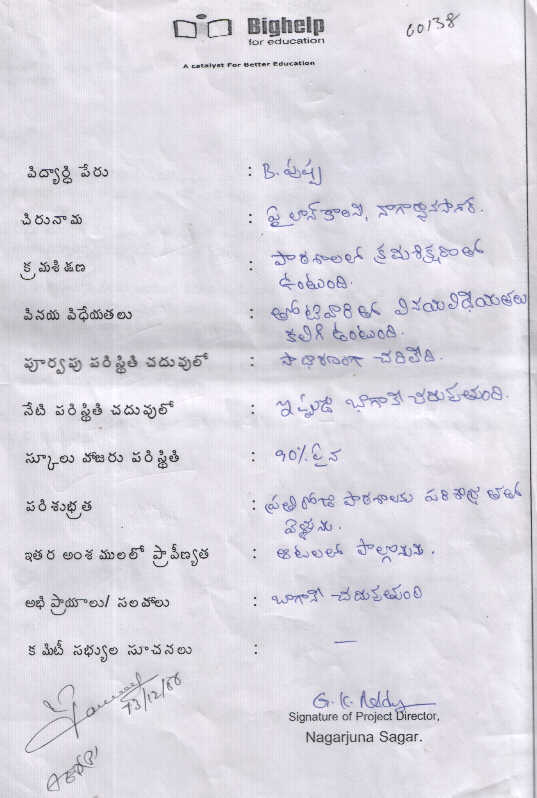 Bighelp
for education
A catalyst For Better Education
60138
విద్యార్థి పేరు : B. పుష్ప
చిరునామ : పైలాన్ కాలని, నాగార్జునసాగర్.
క్రమశిక్షణ : పాఠశాలలో క్రమశిక్షణతో
ఉంటుంది.
వినయ విధేయతలు : తోటివారితో వినయవిధేయతలు
కలిగి ఉంటుంది.
పూర్వపు పరిస్థితి చదువులో : సాధారణంగా చదివేది.
నేటి పరిస్థితి చదువులో : ఇప్పుడు బాగానే చదువుతుంది.
స్కూలు హాజరు పరిస్థితి : 90% పైన
పరిశుభ్రత : ప్రతిరోజు పాఠశాలకు పరిశుభ్రతతో
వెళ్లును.
ఇతర అంశములలో ప్రావీణ్యత : ఆటలలో పాల్గొనును.
అభిప్రాయాలు/ సలహాలు : బాగానే చదువుతుంది
కమిటీ సభ్యుల సూచనలు : —
13/12/08
G. K. Reddy
Signature of Project Director,
Nagarjuna Sagar.